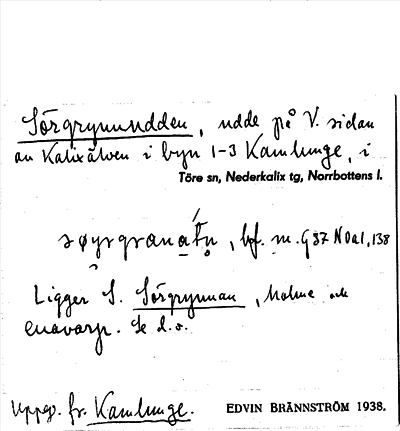 Sörgrynnudden, udde på V. sidan
av Kalixälven i byn 1-3 Kamlunge, i
Töre sn, Nederkalix tg, Norrbottens l.
bf. m.
Ligger S. Sörgrynnan, holme och
Se d.o.
Uppg. fr. Kamlunge. EDVIN BRÄNNSTRÖM 1938.